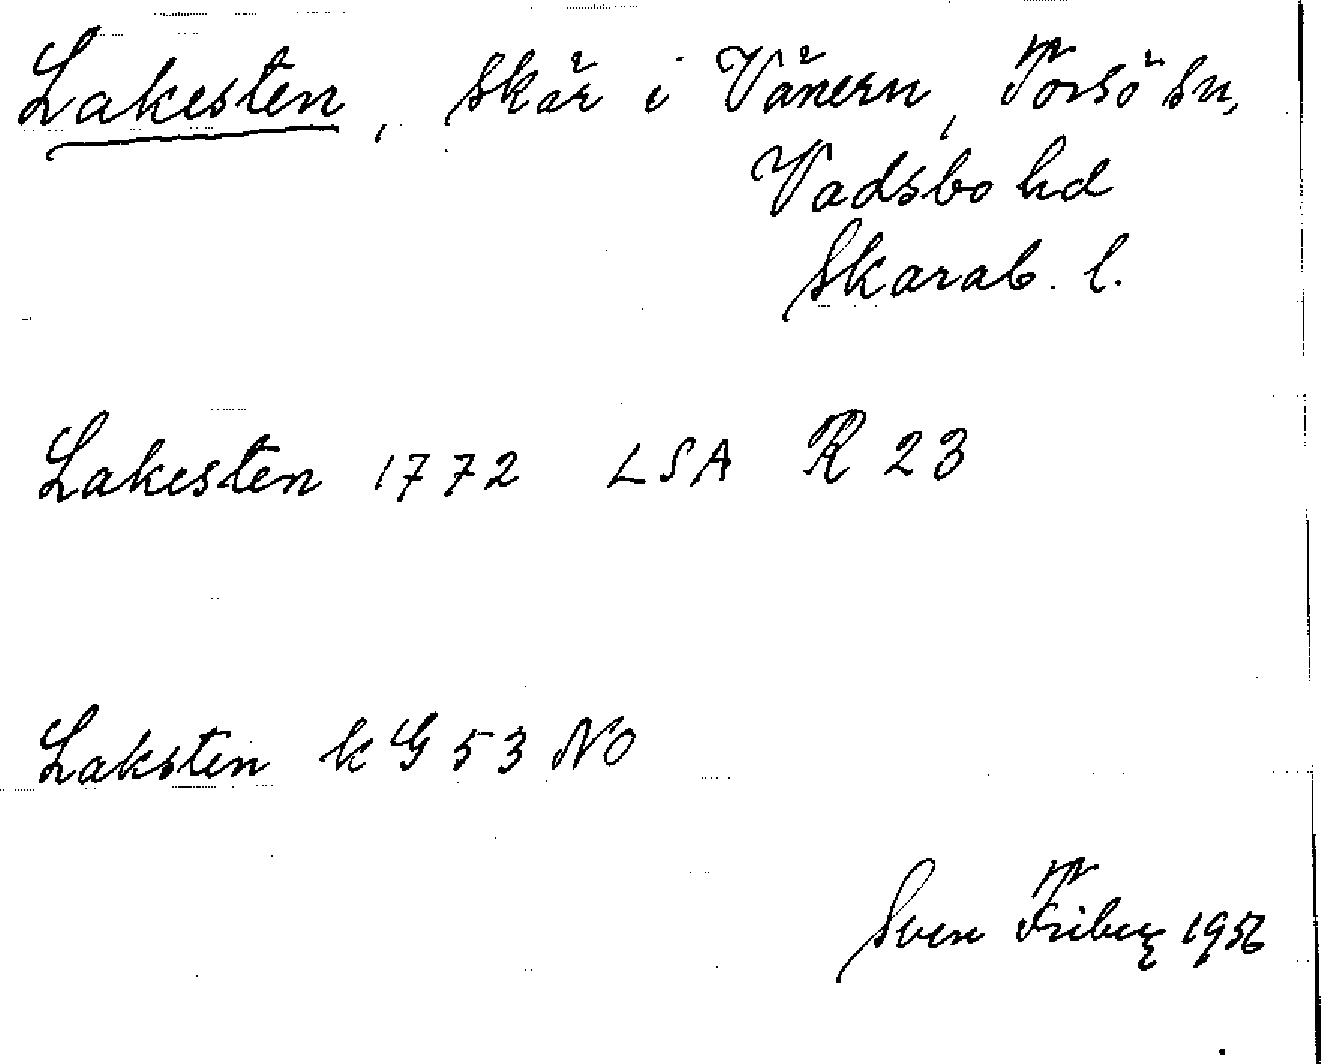 Lakesten, skär i Vänern, Torsö sn,
Vadsbo hd
Skarab. l.
Lakesten 1772 LSA R 23
Laksten kG 53 NO
Sven Friberg 1956